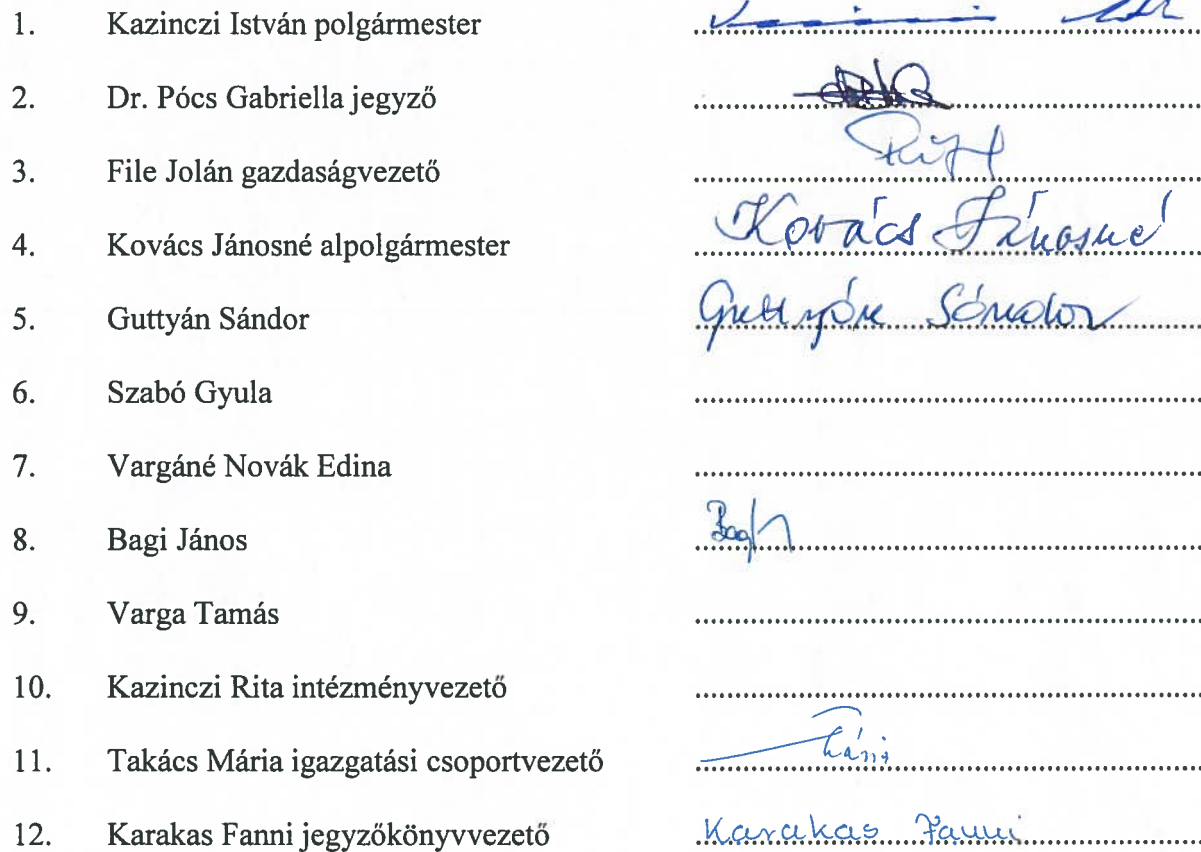 1. Kazinczi István polgármester
2. Dr. Pócs Gabriella jegyző
3. File Jolán gazdaságvezető
4. Kovács Jánosné alpolgármester Kovács Jánosné
5. Guttyán Sándor Guttyán Sándor
6. Szabó Gyula
7. Vargáné Novák Edina
8. Bagi János Bagi
9. Varga Tamás
10. Kazinczi Rita intézményvezető
11. Takács Mária igazgatási csoportvezető
12. Karakas Fanni jegyzőkönyvvezető Karakas Fanni